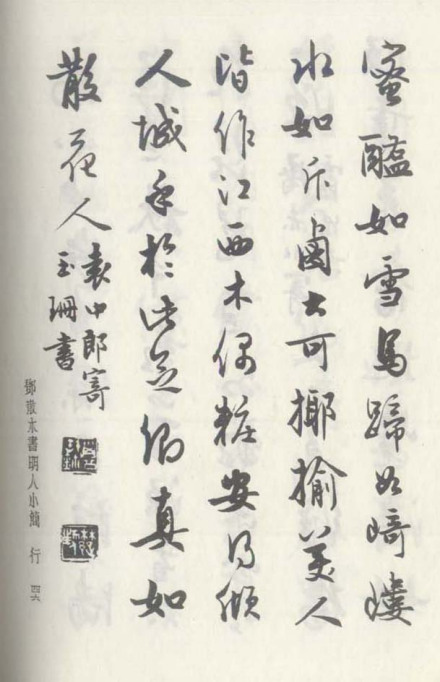 蜜醞如雪馬蹄如崎嶁
水如斥鹵大可揶揄美人
皆作江西木偶粧安得傾
人城乎於此念卿真如
散花人
袁中郎寄
玉珊書
鄧散木書明人小簡 行 四六